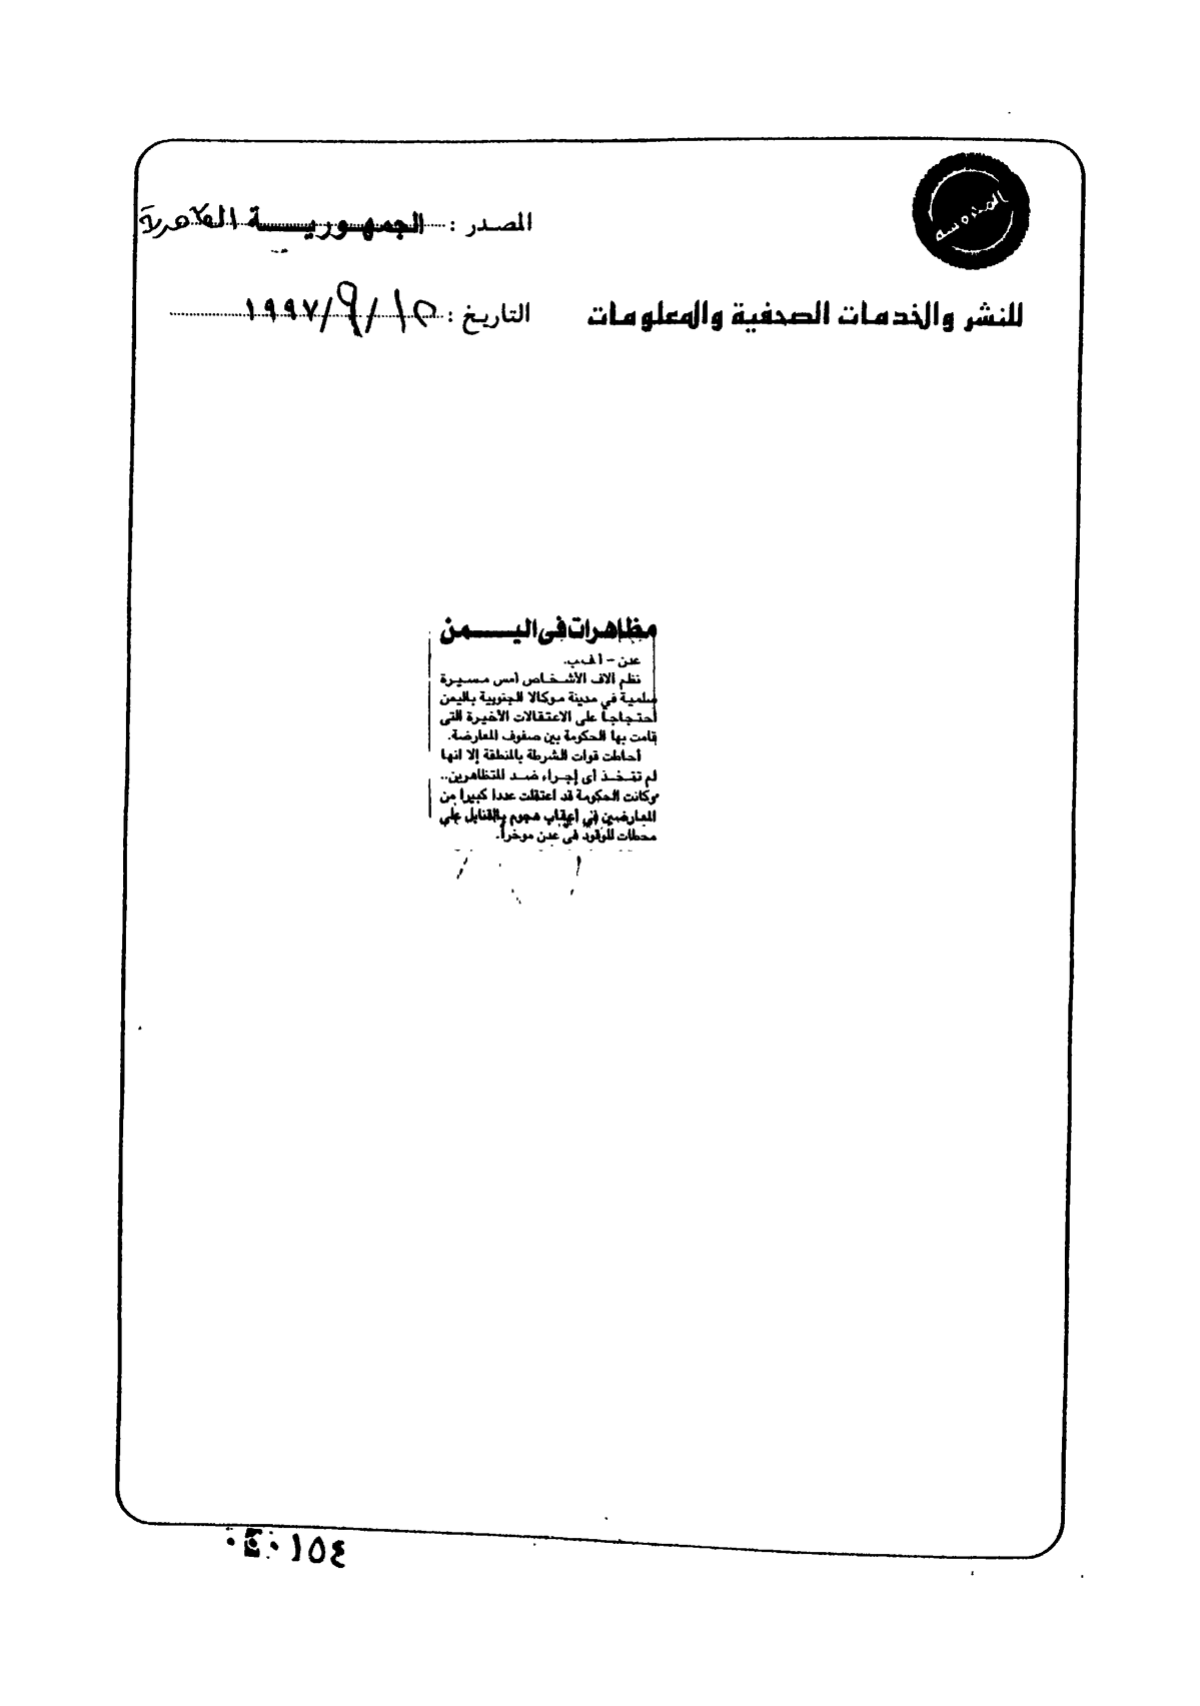 المحروسة
المصدر : الجمهوريــــة القاهرية
للنشر والخدمات الصحفية والمعلومات
التاريخ : ١٥/٩/١٩٩٧
مظاهرات فى اليـــــمن
عدن - أ ف ب.
نظم آلاف الأشخاص أمس مسيرة
سلمية في مدينة موكالا الجنوبية باليمن
احتجاجا على الاعتقالات الأخيرة التى
قامت بها الحكومة بين صفوف المعارضة.
أحاطت قوات الشرطة بالمنطقة إلا انها
لم تتخذ أى إجراء ضد المتظاهرين..
وكانت الحكومة قد اعتقلت عددا كبيرا من
المعارضين في أعقاب هجوم بالقنابل على
محطات للوقود فى عدن موخرا.
١٥٤